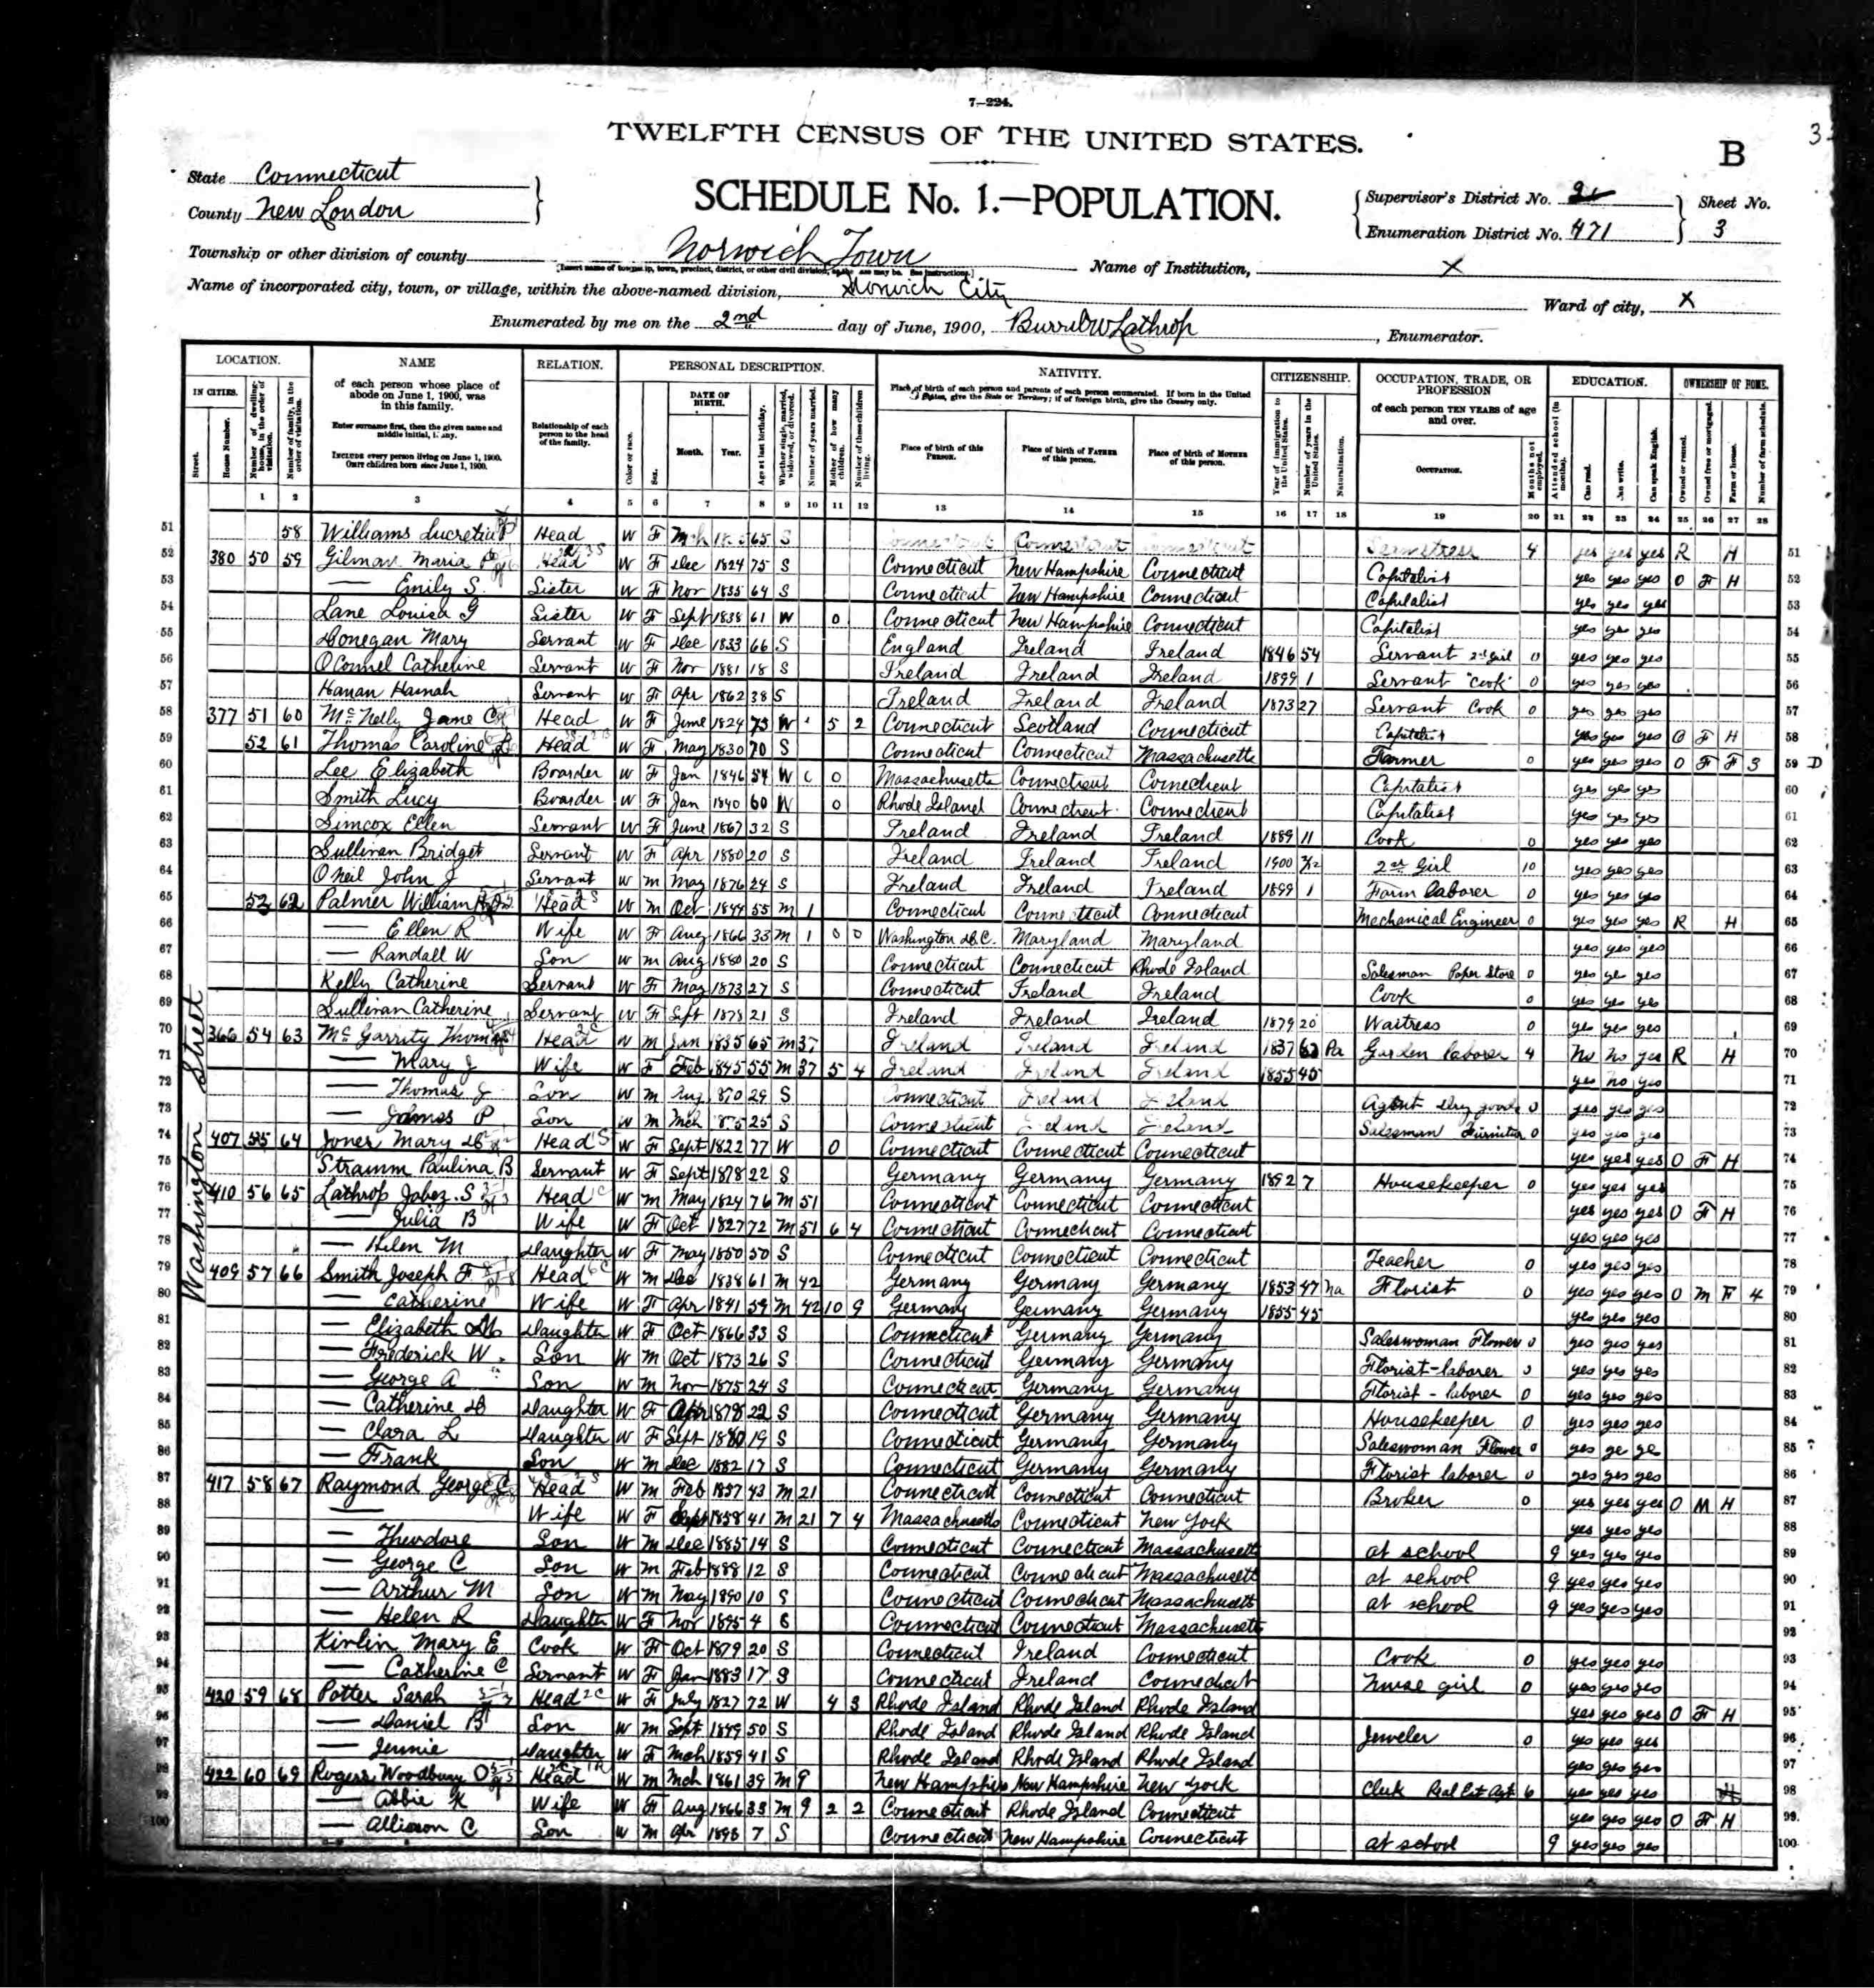 7—224.
TWELFTH CENSUS OF THE UNITED STATES.
B
State Connecticut
County New London
SCHEDULE No. 1.—POPULATION.
Supervisor's District No.
Enumeration District No. 471
Sheet No.
3
Township or other division of county Norwich Town
Name of Institution, X
Name of incorporated city, town, or village, within the above-named division, Norwich City
Ward of city, X
Enumerated by me on the 2nd day of June, 1900, Burrel W Lathrop, Enumerator.
LOCATION. NAME RELATION. PERSONAL DESCRIPTION. NATIVITY. CITIZENSHIP. OCCUPATION, TRADE, OR PROFESSION EDUCATION. OWNERSHIP OF HOME.
IN CITIES. of each person whose place of abode on June 1, 1900, was in this family.
Enter surname first, then the given name and middle initial, if any.
INCLUDE every person living on June 1, 1900. OMIT children born since June 1, 1900.
Street. House Number. Number of dwelling-house, in the order of visitation. Number of family, in the order of visitation.
Relationship of each person to the head of the family.
Color or race. Sex. DATE OF BIRTH. Month. Year. Age at last birthday. Whether single, married, widowed, or divorced. Number of years married. Mother of how many children. Number of these children living.
Place of birth of each person and parents of each person enumerated. If born in the United States, give the State or Territory; if of foreign birth, give the Country only.
Place of birth of this PERSON. Place of birth of FATHER of this person. Place of birth of MOTHER of this person.
Year of immigration to the United States. Number of years in the United States. Naturalization.
of each person TEN YEARS of age and over.
OCCUPATION. Months not employed.
Attended school (in months). Can read. Can write. Can speak English. Owned or rented. Owned free or mortgaged. Farm or house. Number of farm schedule.
1 2 3 4 5 6 7 8 9 10 11 12 13 14 15 16 17 18 19 20 21 22 23 24 25 26 27 28
Washington Street
51 58 Williams Lucretia Head W F Mch 65 S Connecticut Seamstress 4 yes yes yes R H 51
52 380 50 59 Gilman Maria P Head W F Dec 1824 75 S Connecticut New Hampshire Connecticut Capitalist yes yes yes O F H 52
53 — Emily S. Sister W F Nov 1835 64 S Connecticut New Hampshire Connecticut Capitalist yes yes yes 53
54 Lane Louisa G Sister W F Sept 1838 61 W 0 Connecticut New Hampshire Connecticut Capitalist yes yes yes 54
55 Donegan Mary Servant W F Dec 1833 66 S England Ireland Ireland 1846 54 Servant 2nd girl 0 yes yes yes 55
56 OConnel Catherine Servant W F Nov 1881 18 S Ireland Ireland Ireland 1899 1 Servant "cook" 0 yes yes yes 56
57 Hanan Hannah Servant W F Apr 1862 38 S Ireland Ireland Ireland 1873 27 Servant Cook 0 yes yes yes 57
58 377 51 60 McNelly Jane C Head W F June 1824 75 W 5 2 Connecticut Scotland Connecticut Capitalist yes yes yes O F H 58
59 52 61 Thomas Caroline L Head W F May 1830 70 S Connecticut Connecticut Massachusetts Farmer 0 yes yes yes O F F 3 59 D
60 Lee Elizabeth Boarder W F Jan 1846 54 W 0 Massachusetts Connecticut Connecticut Capitalist yes yes yes 60
61 Smith Lucy Boarder W F Jan 1840 60 W 0 Rhode Island Connecticut Connecticut Capitalist yes yes yes 61
62 Simcox Ellen Servant W F June 1867 32 S Ireland Ireland Ireland 1889 11 Cook 0 yes yes yes 62
63 Sullivan Bridget Servant W F Apr 1880 20 S Ireland Ireland Ireland 1900 2nd Girl 10 yes yes yes 63
64 ONeil John J Servant W m May 1876 24 S Ireland Ireland Ireland 1899 1 Farm laborer 0 yes yes yes 64
65 53 62 Palmer William Head W m Oct 1844 55 m 1 Connecticut Connecticut Connecticut Mechanical Engineer 0 yes yes yes R H 65
66 — Ellen R Wife W F Aug 1866 33 m 1 0 0 Washington D.C. Maryland Maryland yes yes yes 66
67 — Randall W Son W m Aug 1880 20 S Connecticut Connecticut Rhode Island Salesman Paper Store 0 yes yes yes 67
68 Kelly Catherine Servant W F May 1873 27 S Connecticut Ireland Ireland Cook 0 yes yes yes 68
69 Sullivan Catherine Servant W F Sept 1878 21 S Ireland Ireland Ireland 1879 20 Waitress 0 yes yes yes 69
70 366 54 63 McGarrity Thomas Head W m Jan 1835 65 m 37 Ireland Ireland Ireland 1837 63 Pa Garden laborer 4 no no yes R H 70
71 — Mary J Wife W F Feb 1845 55 m 37 5 4 Ireland Ireland Ireland 1855 45 yes no yes 71
72 — Thomas J Son W m Aug 1870 29 S Connecticut Ireland Ireland Agent dry goods 0 yes yes yes 72
73 — James P Son W m Mch 1875 25 S Connecticut Ireland Ireland Salesman Furniture 0 yes yes yes 73
74 407 55 64 Jones Mary Head W F Sept 1822 77 W 0 Connecticut Connecticut Connecticut yes yes yes O F H 74
75 Stramm Paulina B Servant W F Sept 1878 22 S Germany Germany Germany 1892 7 Housekeeper 0 yes yes yes 75
76 410 56 65 Lathrop Jabez S Head W m May 1824 76 m 51 Connecticut Connecticut Connecticut yes yes yes O F H 76
77 — Julia B Wife W F Oct 1827 72 m 51 6 4 Connecticut Connecticut Connecticut yes yes yes 77
78 — Helen M Daughter W F May 1850 50 S Connecticut Connecticut Connecticut Teacher 0 yes yes yes 78
79 409 57 66 Smith Joseph F Head W m Dec 1838 61 m 42 Germany Germany Germany 1853 47 na Florist 0 yes yes yes O m F 4 79
80 — Catherine Wife W F Apr 1841 59 m 42 10 9 Germany Germany Germany 1855 45 yes yes yes 80
81 — Elizabeth M Daughter W F Oct 1866 33 S Connecticut Germany Germany Saleswoman Flower 0 yes yes yes 81
82 — Frederick W. Son W m Oct 1873 26 S Connecticut Germany Germany Florist-laborer 0 yes yes yes 82
83 — George A Son W m Nov 1875 24 S Connecticut Germany Germany Florist - laborer 0 yes yes yes 83
84 — Catherine Daughter W F Apr 1878 22 S Connecticut Germany Germany Housekeeper 0 yes yes yes 84
85 — Clara L Daughter W F Sept 1880 19 S Connecticut Germany Germany Saleswoman Flower 0 yes ye ye 85
86 — Frank Son W m Dec 1882 17 S Connecticut Germany Germany Florist laborer 0 yes yes yes 86
87 417 58 67 Raymond George C Head W m Feb 1857 43 m 21 Connecticut Connecticut Connecticut Broker 0 yes yes yes O M H 87
88 — Wife W F Sept 1858 41 m 21 7 4 Massachusetts Connecticut New York yes yes yes 88
89 — Theodore Son W m Dec 1885 14 S Connecticut Connecticut Massachusetts at school 9 yes yes yes 89
90 — George C Son W m Feb 1888 12 S Connecticut Connecticut Massachusetts at school 9 yes yes yes 90
91 — Arthur M Son W m May 1890 10 S Connecticut Connecticut Massachusetts at school 9 yes yes yes 91
92 — Helen R Daughter W F Nov 1895 4 S Connecticut Connecticut Massachusetts 92
93 Kinlin Mary E Cook W F Oct 1879 20 S Connecticut Ireland Connecticut Cook 0 yes yes yes 93
94 — Catherine C Servant W F Jan 1883 17 S Connecticut Ireland Connecticut Nurse girl 0 yes yes yes 94
95 420 59 68 Potter Sarah Head W F July 1827 72 W 4 3 Rhode Island Rhode Island Rhode Island yes yes yes O F H 95
96 — Daniel B Son W m Sept 1849 50 S Rhode Island Rhode Island Rhode Island Jeweler 0 yes yes yes 96
97 — Jennie Daughter W F Mch 1859 41 S Rhode Island Rhode Island Rhode Island yes yes yes 97
98 422 60 69 Rogers Woodbury O Head W m Mch 1861 39 m 9 New Hampshire New Hampshire New York Clerk Real Est Agt 6 yes yes yes H 98
99 — Abbie K Wife W F Aug 1866 33 m 9 2 2 Connecticut Rhode Island Connecticut yes yes yes O F H 99
100 — Allison C Son W m Apr 1893 7 S Connecticut New Hampshire Connecticut at school 9 yes yes yes 100